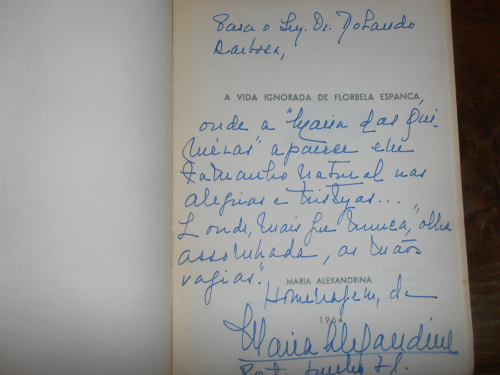 Para o Sr. Dr. Rolando
Barbosa,
A VIDA IGNORADA DE FLORBELA ESPANCA,
onde a "Maria das Qui-
meras" aparece em
tamanho natural nas
alegrias e tristezas...
E onde, mais que nunca, "olha
assombrada, as mãos
vazias".
MARIA ALEXANDRINA
Homenagem, de
1964
Maria Alexandrina
Junho